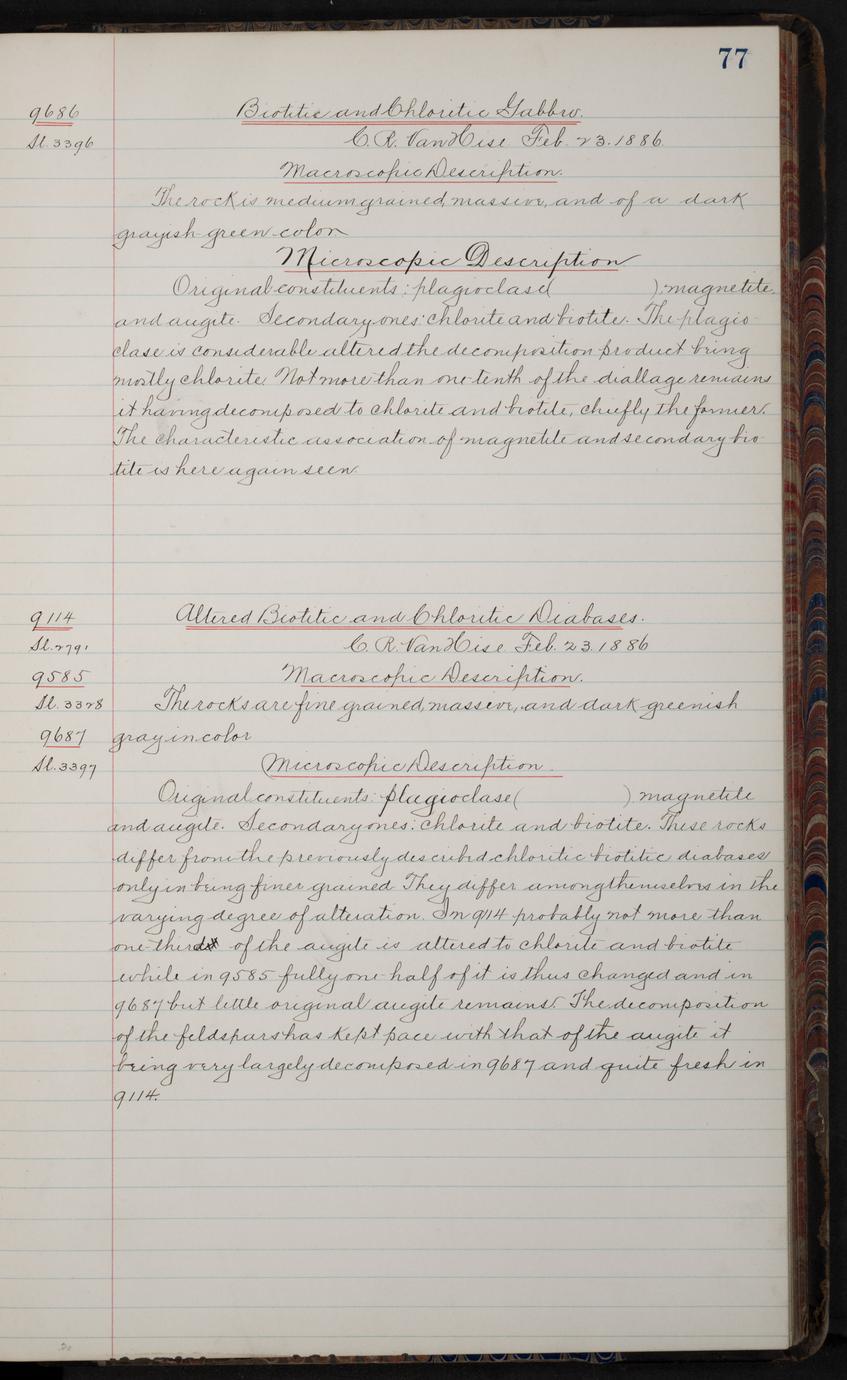 77
9686 Biotitic and Chloritic Gabbro.
Sl. 3396 C. R. Van Hise Feb. 23. 1886.
Macroscopic Description.
The rock is medium grained, massive, and of a dark
grayish-green color
Microscopic Description
Original constituents: plagioclase( ); magnetite,
and augite. Secondary ones: chlorite and biotite. The plagio-
clase is considerable altered the decomposition product being
mostly chlorite. Not more than one-tenth of the diallage remains
it having decomposed to chlorite and biotite, chiefly the former.
The characteristic association of magnetite and secondary bio-
tite is here again seen.
9114 Altered Biotitic and Chloritic Diabases.
Sl. 2791 C. R. Van Hise Feb. 23. 1886
9585 Macroscopic Description.
Sl. 3328 The rocks are fine grained, massive, and dark greenish
9687 gray in color
Sl. 3397 Microscopic Description.
Original constituents: plagioclase( ) magnetite
and augite. Secondary ones: chlorite and biotite. These rocks
differ from the previously described chloritic biotitic diabases
only in being finer grained. They differ among themselves in the
varying degree of alteration. In 9114 probably not more than
one-third of the augite is altered to chlorite and biotite
while in 9585 fully one-half of it is thus changed and in
9687 but little original augite remains. The decomposition
of the feldspars has kept pace with that of the augite it
being very largely decomposed in 9687 and quite fresh in
9114.